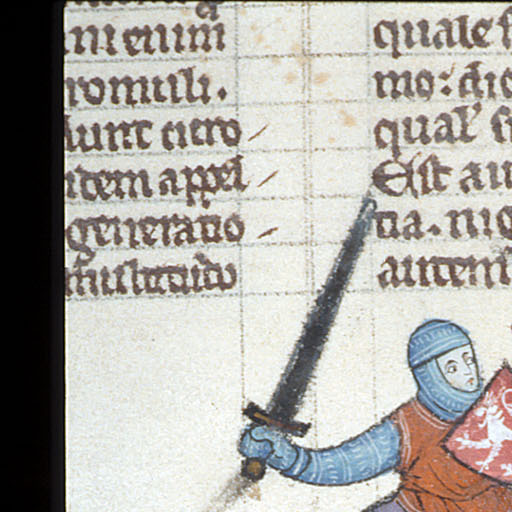 ni enim
romuli.
dunt cicro
idem appel
generatio
multitudo
quale s
mo: dic
qual' s
Est au
tia. nig
autem